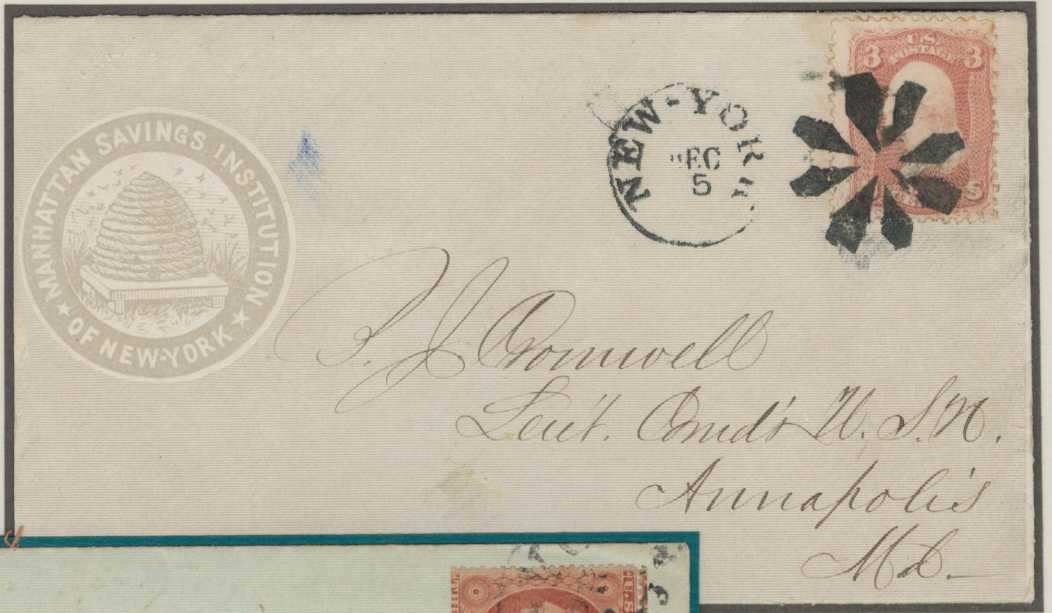 MANHATTAN SAVINGS INSTITUTION
★ OF NEW-YORK ★
NEW-YORK
DEC
5
3 U.S. 3
POSTAGE
B. J. Cromwell
Leiut. Comd'r U. S. N.
Annapolis
Md.
U.S.